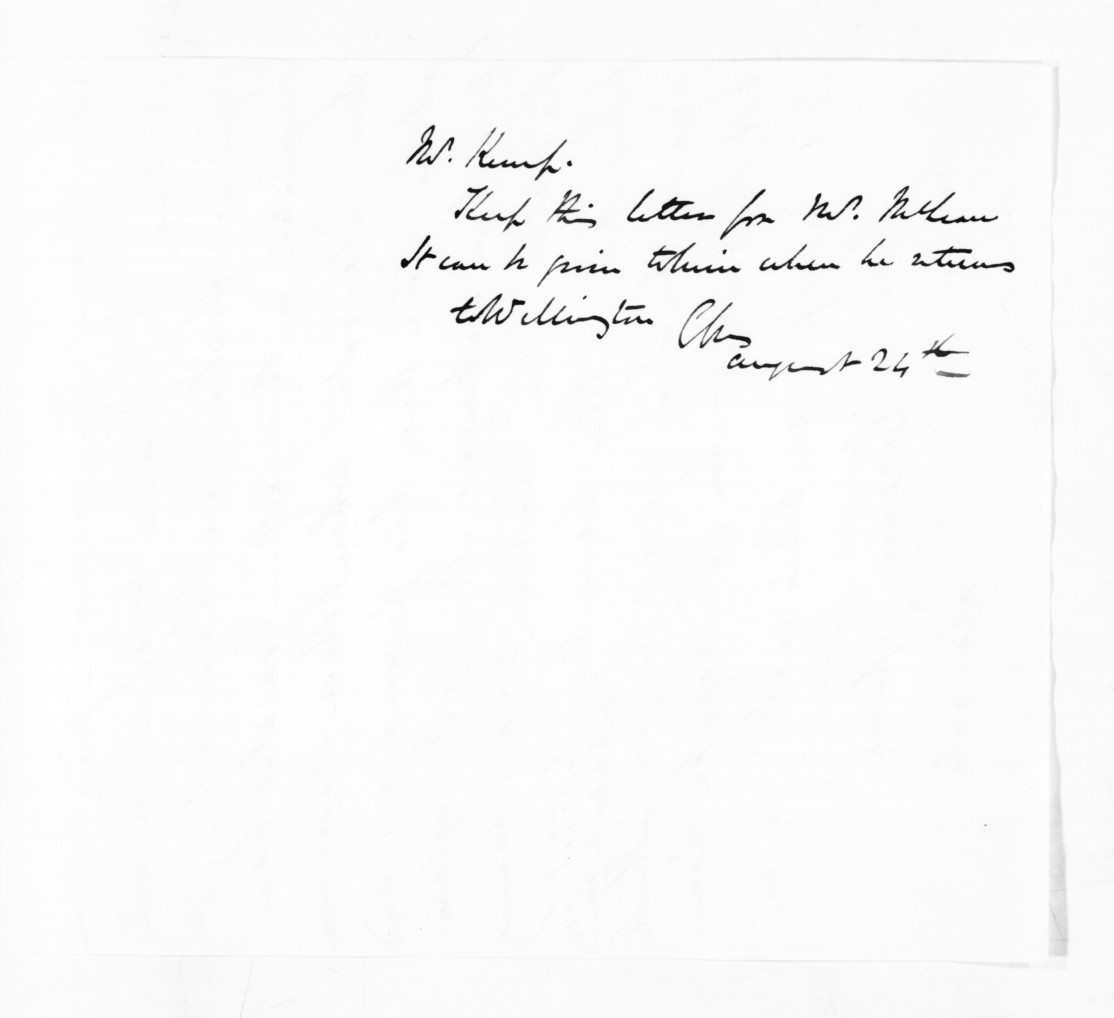 Mr. Kemp.
Keep this letter for Mr. McLean
It can be given to him when he returns
to Wellington
August 24th